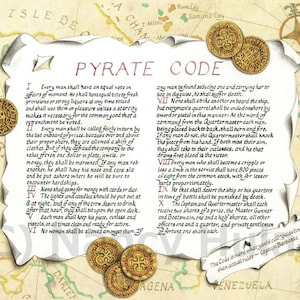 ISLE DE
PYRATE CODE
I Every man shall have an equal vote on
affairs of moment. He shall have equal title to fresh
provisions or strong liquors at any time seized
and shall use them at pleasure unless a scarcity
makes it necessary for the common good that a
retrenchment be voted.
II Every man shall be called fairly in turn by
the list on board of prizes, because over and above
their proper share, they are allowed a shift of
clothes. But if they defraud the company to the
value of even one dollar in plate, jewels, or
money, they shall be marooned. If any man rob
another, he shall have his nose and ears slit
and be put ashore where he will be sure to
encounter hardships.
III None shall game for money with cards or dice.
IV The lights and candles should be put out
at 8 at night, and if any of the crew desire to drink
after that hour, they shall sit upon the open deck.
V Each man shall keep his piece, cutlass and
pistols, at all times clean and ready for action.
VI No woman shall be allowed amongst them. If
any man be found seducing one and carrying her to
sea in disguise, he shall suffer death.
VII None shall strike another on board the ship,
but every man's quarrel shall be ended on shore by
sword or pistol in this manner. At the word of
command from the Quartermaster each man,
being placed back to back, shall turn and fire.
If any man do not, the Quartermaster shall knock
the piece from his hand. If both miss their aim,
they shall take to their cutlasses, and he that
draws first blood is the victor.
VIII Every man who shall become a cripple or
lose a limb in the service shall have 800 pieces
of eight from the common stock, with for lesser
hurts proportionately.
IX He that shall desert the ship or his quarters
in time of battle shall be punished by death.
X The Captain and Quartermaster shall each
receive two shares of a prize, the Master Gunner
and Boatswain, one and a half shares, all other
officers one and a quarter, and private
gentlemen of fortune one share each.
VENEZUELA